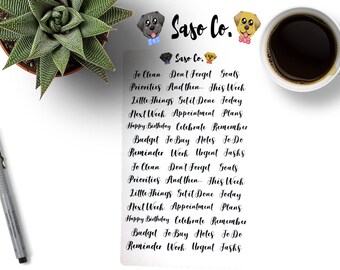 Saso Co.
Saso Co.
To Clean Don't Forget Goals
Priorities And then... This Week
Little Things Get it Done Today
Next Week Appointment Plans
Happy Birthday Celebrate Remember
Budget To Buy Notes To Do
Reminder Work Urgent Tasks
To Clean Don't Forget Goals
Priorities And then... This Week
Little Things Get it Done Today
Next Week Appointment Plans
Happy Birthday Celebrate Remember
Budget To Buy Notes To Do
Reminder Work Urgent Tasks